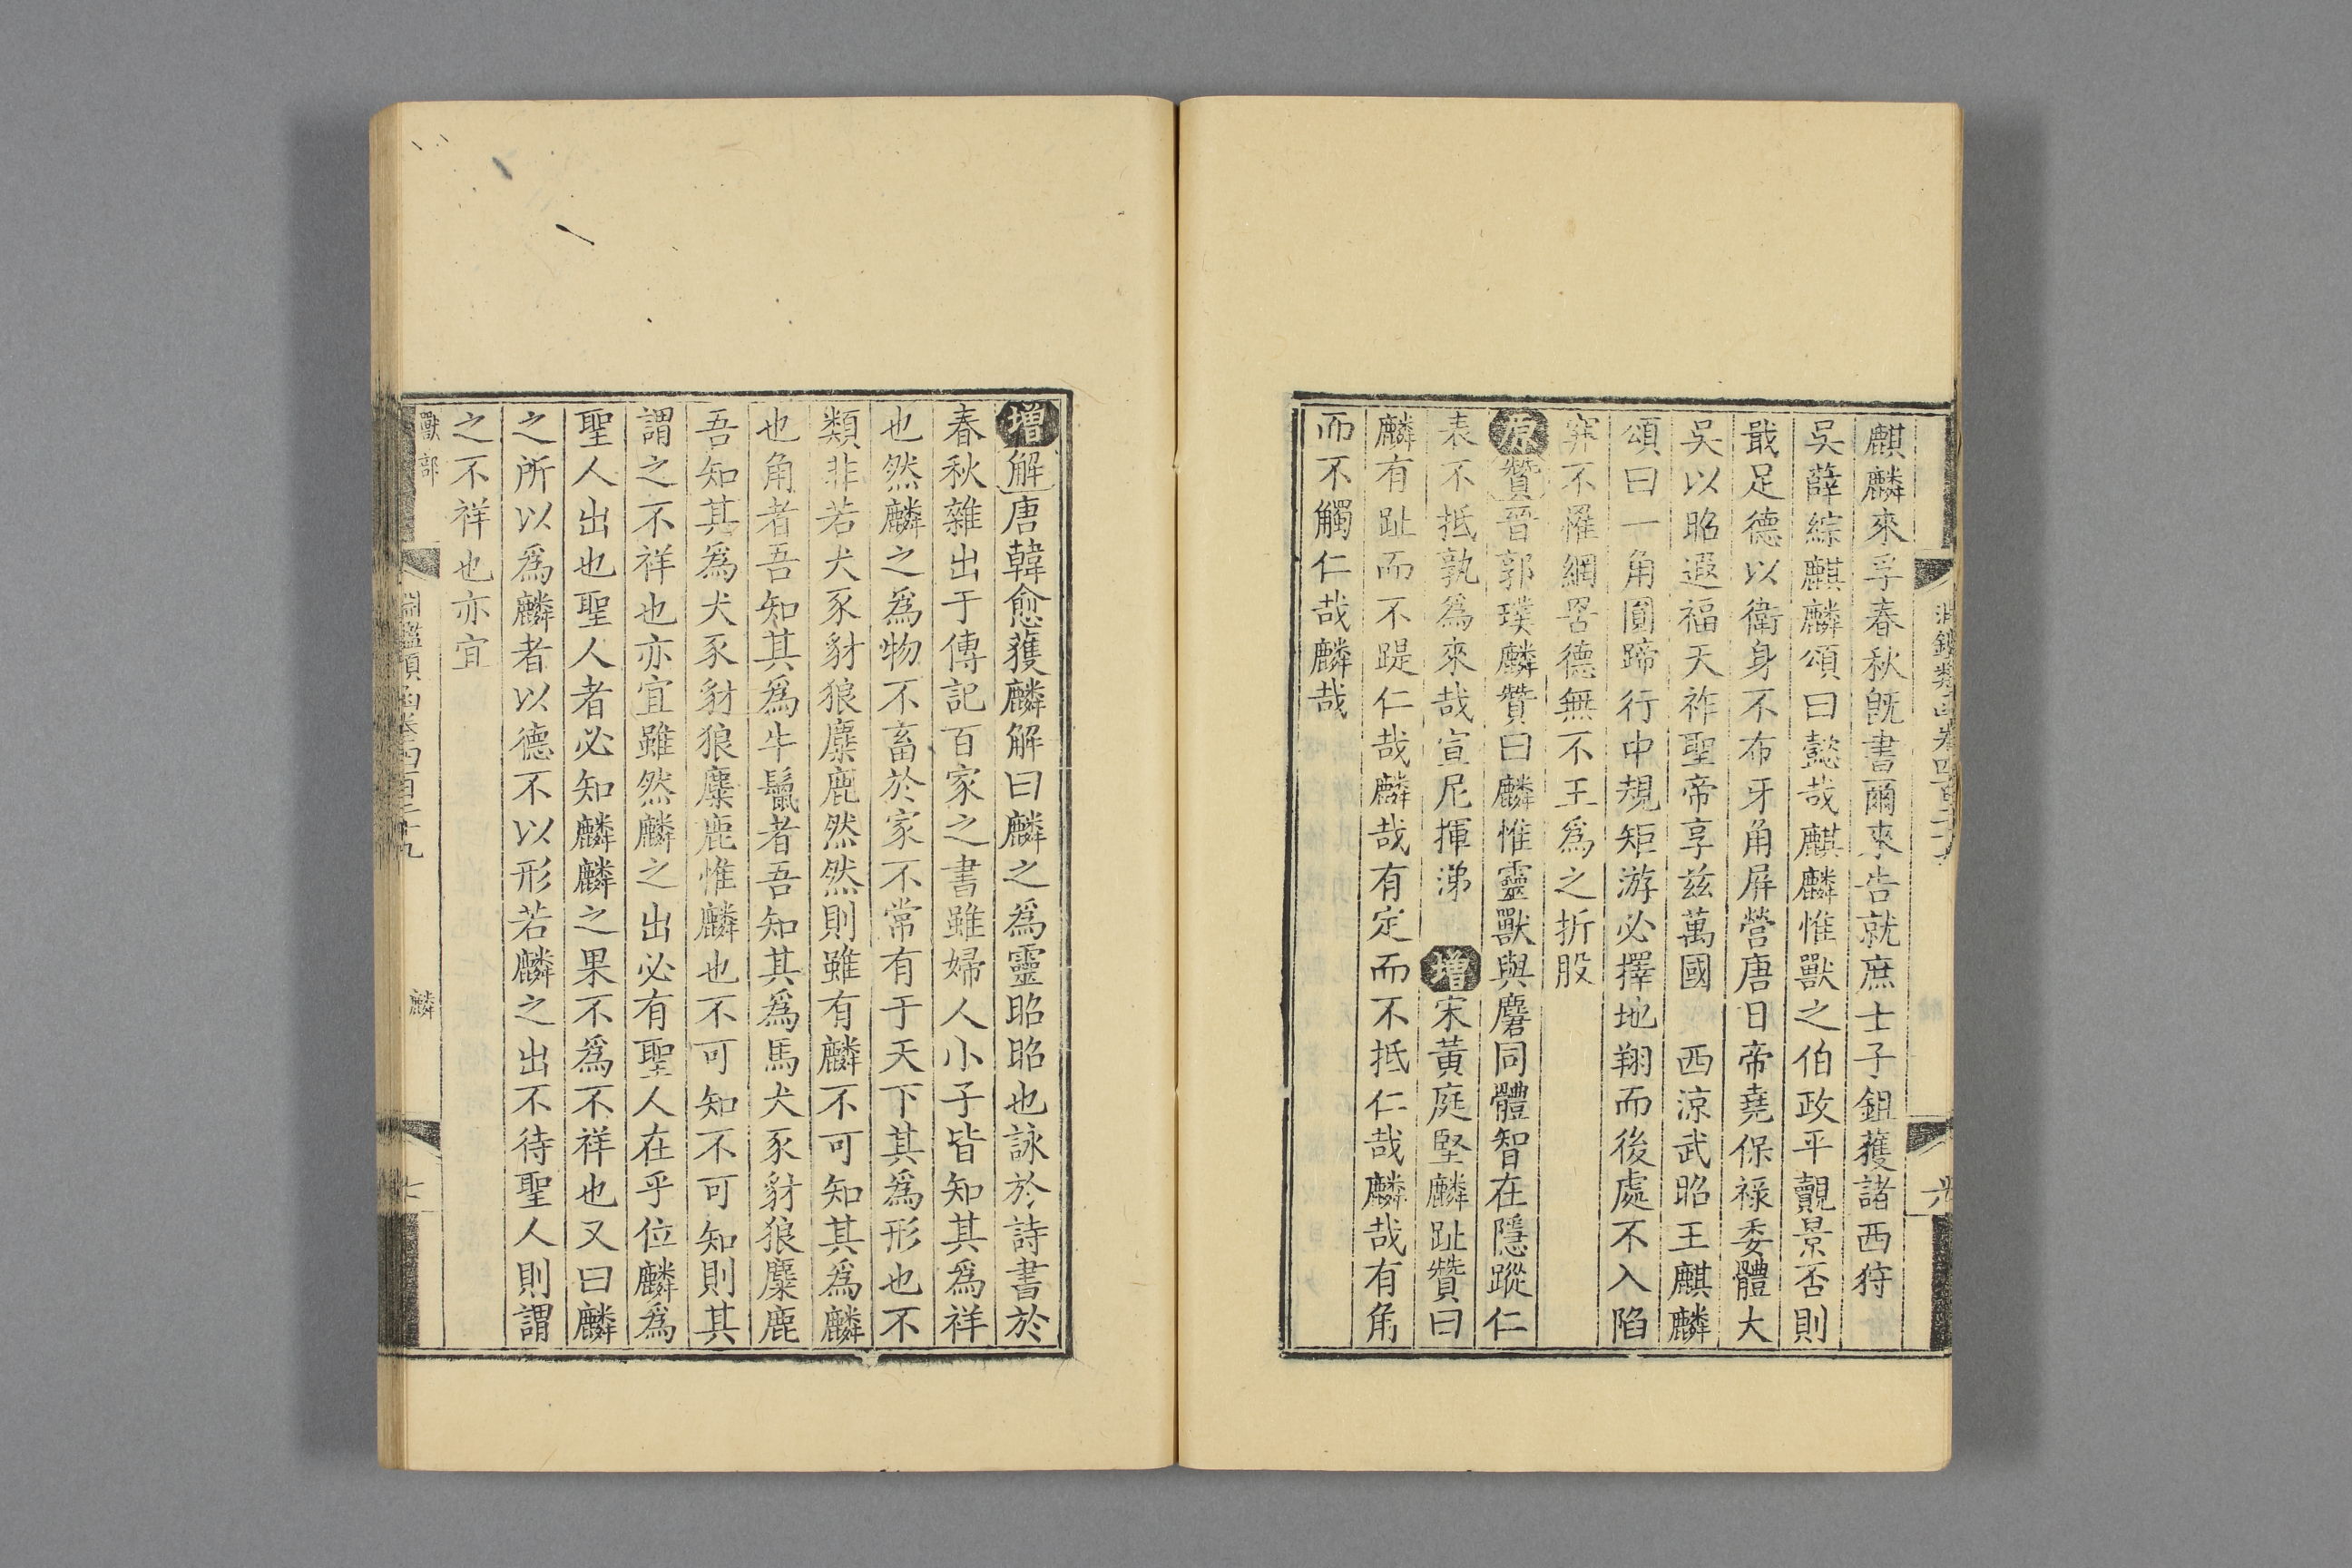 麒麟來孚春秋旣書爾來告就庶士子鉏獲諸西狩
吳薛綜麒麟頌曰懿哉麒麟惟獸之伯政平覿景否則
戢足德以衛身不布牙角屏營唐日帝堯保祿委體大
吳以昭遐福天祚聖帝享茲萬國 西涼武昭王麒麟
頌曰一角圓蹄行中規矩游必擇地翔而後處不入陷
穽不罹網罟德無不王爲之折股
原贊晉郭璞麟贊曰麟惟靈獸與麐同體智在隱蹤仁
表不抵孰爲來哉宣尼揮涕 增宋黃庭堅麟趾贊曰
麟有趾而不踶仁哉麟哉有定而不抵仁哉麟哉有角
而不觸仁哉麟哉
增解唐韓愈獲麟解曰麟之爲靈昭昭也詠於詩書於
春秋雜出于傳記百家之書雖婦人小子皆知其爲祥
也然麟之爲物不畜於家不常有于天下其爲形也不
類非若犬豕豺狼麋鹿然然則雖有麟不可知其爲麟
也角者吾知其爲牛鬣者吾知其爲馬犬豕豺狼麋鹿
吾知其爲犬豕豺狼麋鹿惟麟也不可知不可知則其
謂之不祥也亦宜雖然麟之出必有聖人在乎位麟爲
聖人出也聖人者必知麟麟之果不爲不祥也又曰麟
之所以爲麟者以德不以形若麟之出不待聖人則謂
之不祥也亦宜
獸部 淵鑑類函卷四百二十九 麟